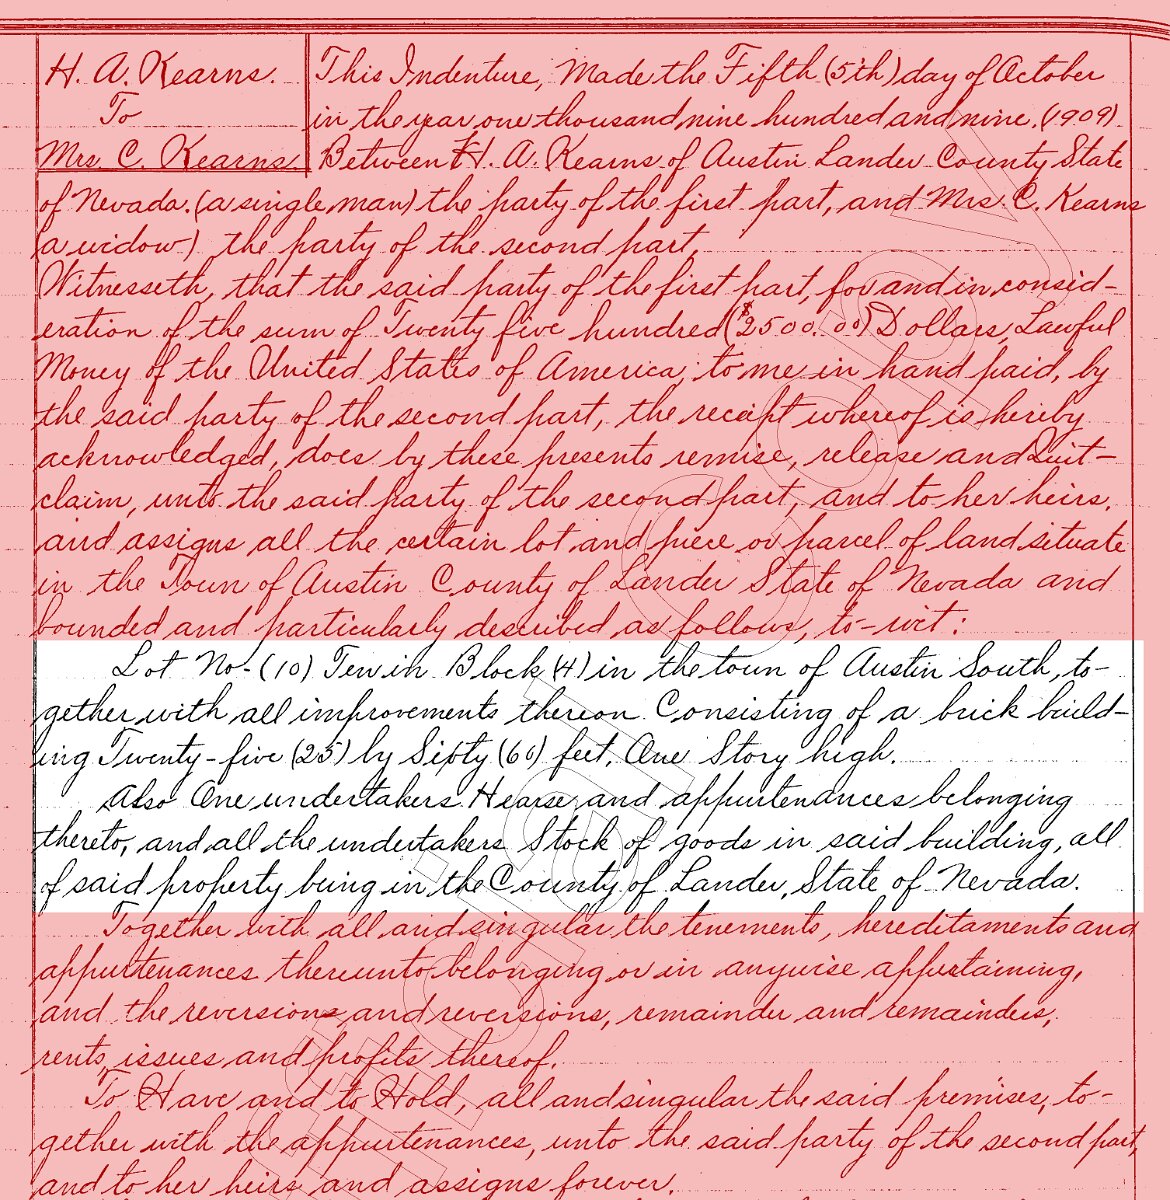 H. A. Kearns.
To
Mrs C. Kearns.
This Indenture, Made the Fifth (5th) day of October
in the year one thousand nine hundred and nine. (1909)
Between H. A. Kearns of Austin Lander County State
of Nevada. (a single man) the party of the first part, and Mrs C. Kearns
(a widow) the party of the second part,
Witnesseth, that the said party of the first part, for and in consid-
eration of the sum of Twenty five hundred ($2500.00) Dollars, Lawful
Money of the United States of America, to me in hand paid, by
the said party of the second part, the receipt whereof is hereby
acknowledged, does by these presents remise, release and Quit-
claim, unto the said party of the second part, and to her heirs,
and assigns all the certain lot and piece or parcel of land situate
in the Town of Austin County of Lander State of Nevada and
bounded and particularly described as follows, to-wit:
Lot No- (10) Ten in Block (4) in the town of Austin South, to-
gether with all improvements thereon. Consisting of a brick build-
ing Twenty-five (25) by Sixty (60) feet. One Story high.
Also One undertakers Hearse and appurtenances belonging
thereto, and all the undertakers Stock of goods in said building, all
of said property being in the County of Lander, State of Nevada.
Together with all and singular the tenements, hereditaments and
appurtenances thereunto belonging or in anywise appertaining,
and the reversions, and reversions, remainder and remainders,
rents, issues and profits thereof.
To Have and to Hold, all and singular the said premises, to-
gether with the appurtenances, unto the said party of the second part,
and to her heirs and assigns forever.